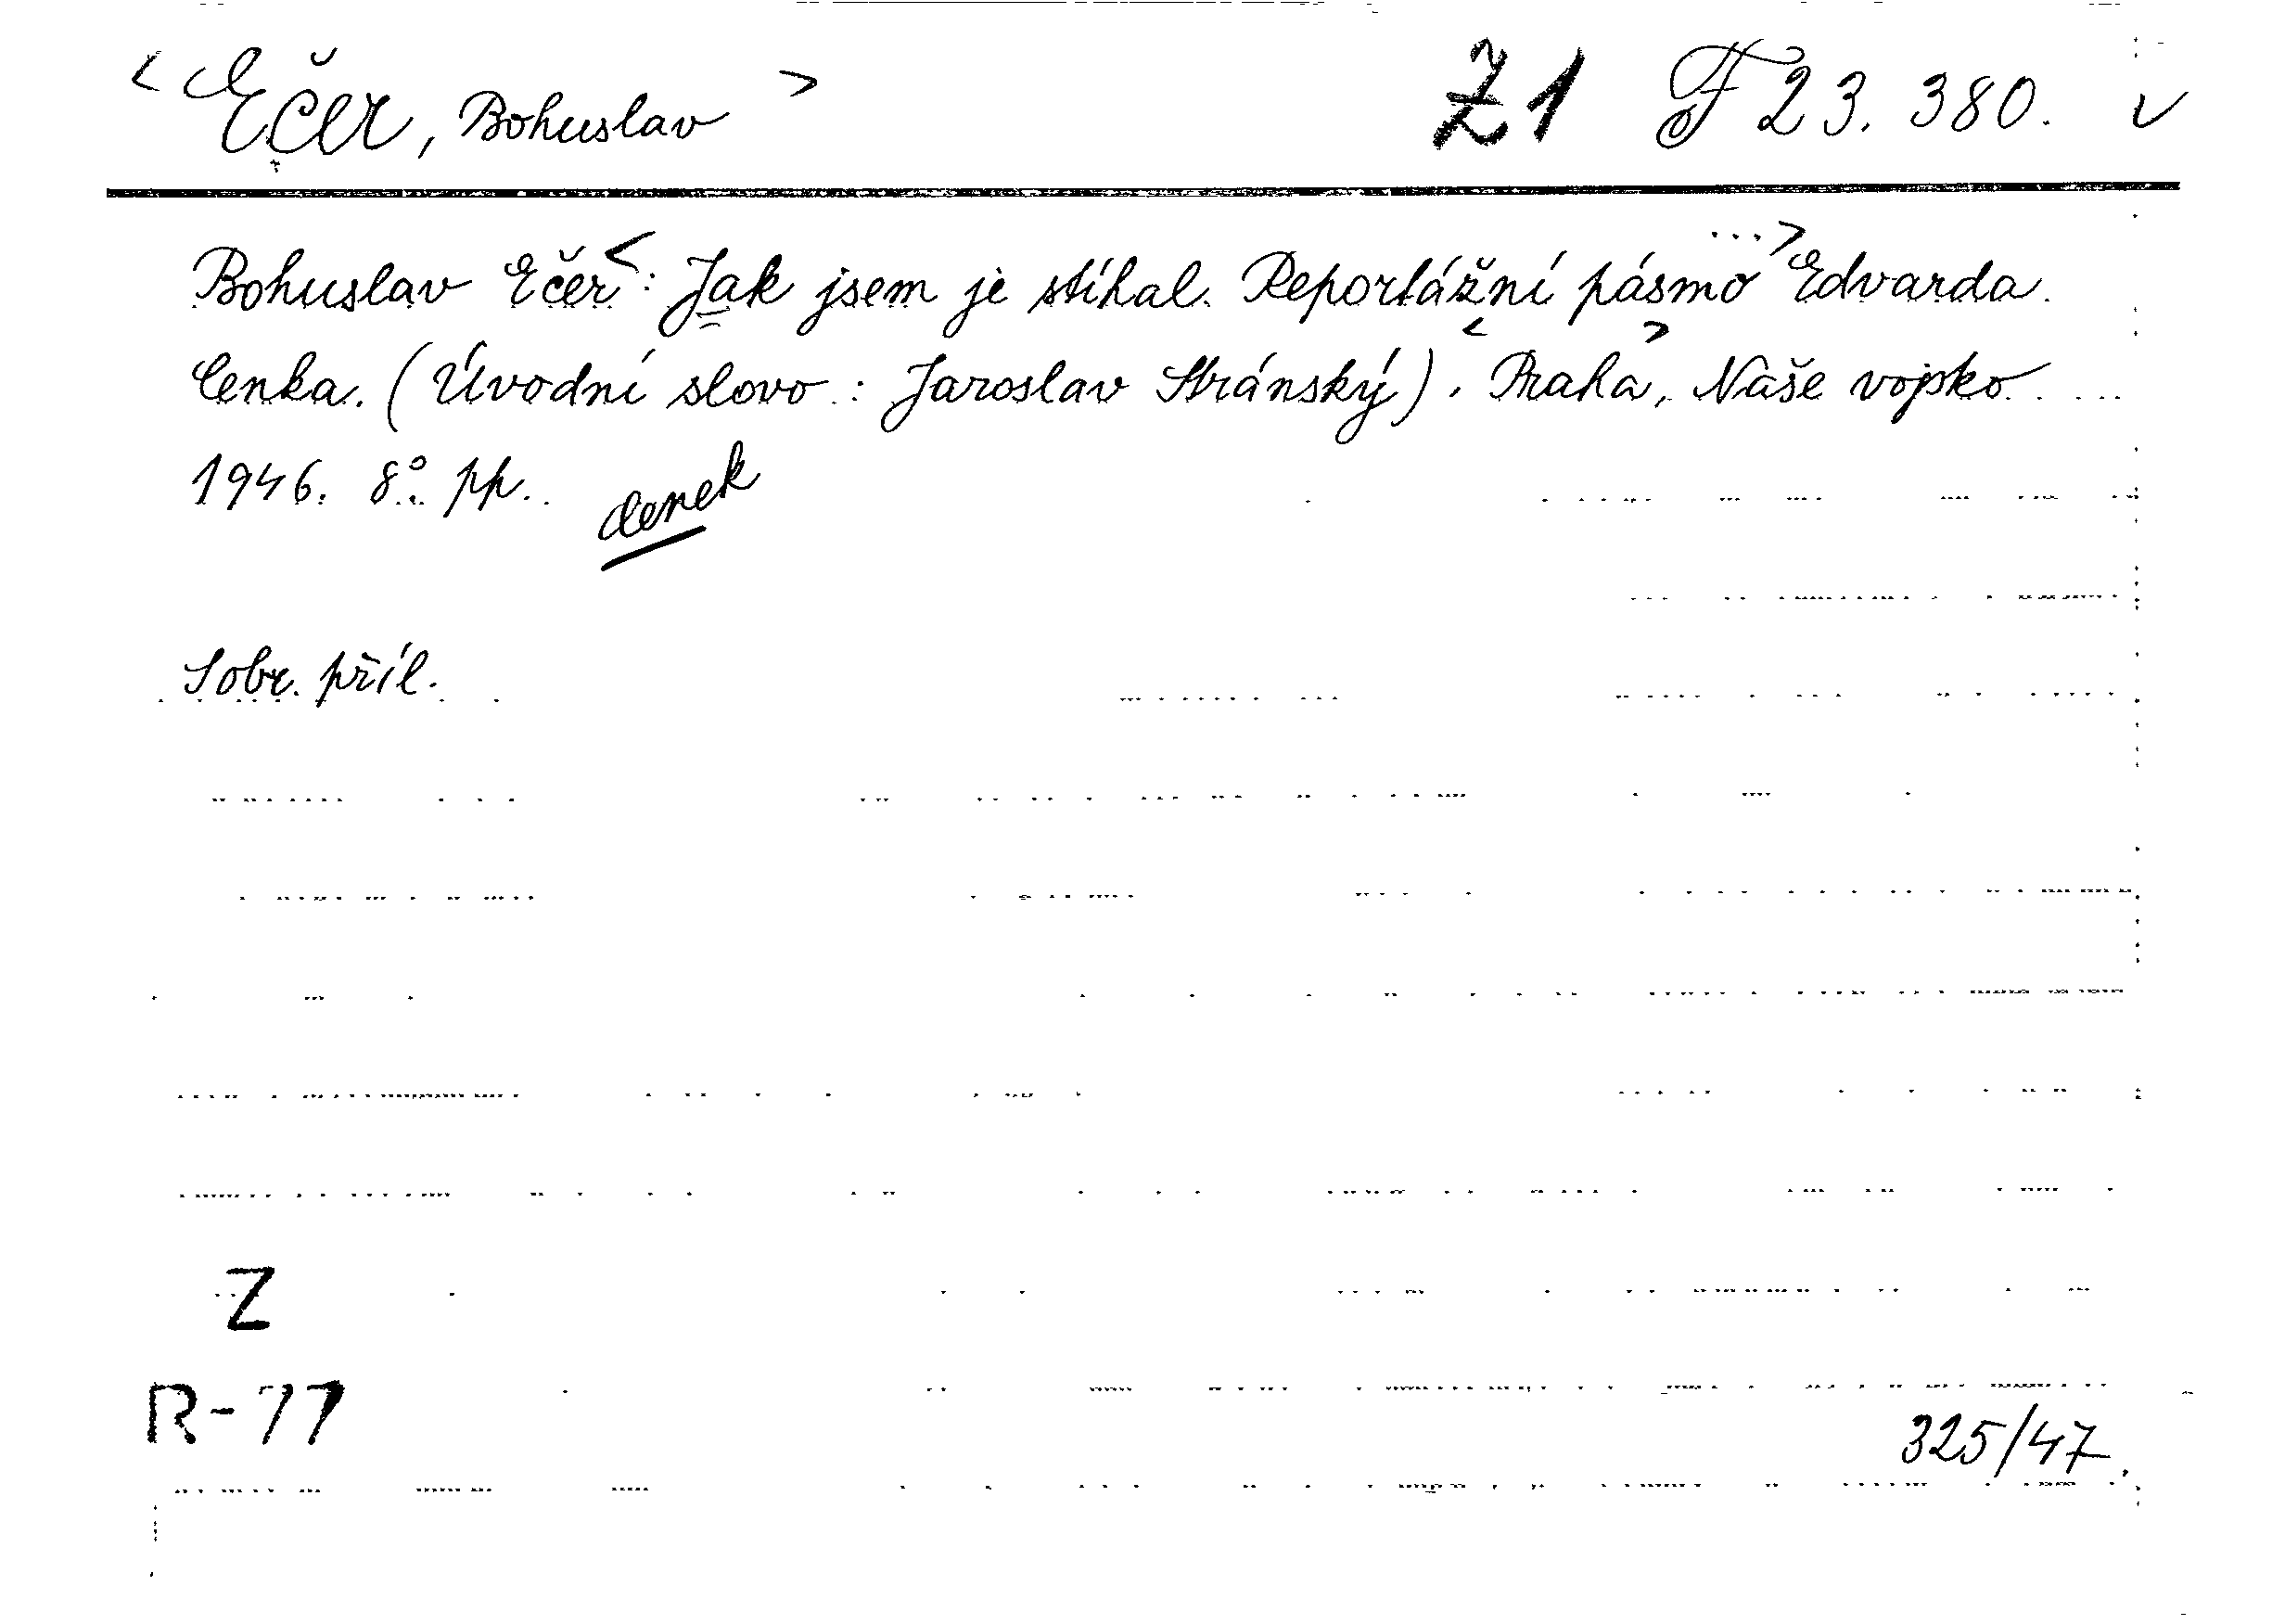 < Ečer, Bohuslav > Z1 F 23.380. v
Bohuslav Ečer <: Jak jsem je stíhal. Reportážní pásmo ...> Edvarda
Cenka. (Úvodní slovo: Jaroslav Stránský). <Praha>, Naše vojsko
1946. 8° pp. denek
S obr. příl.
Z
R-77
325/47.